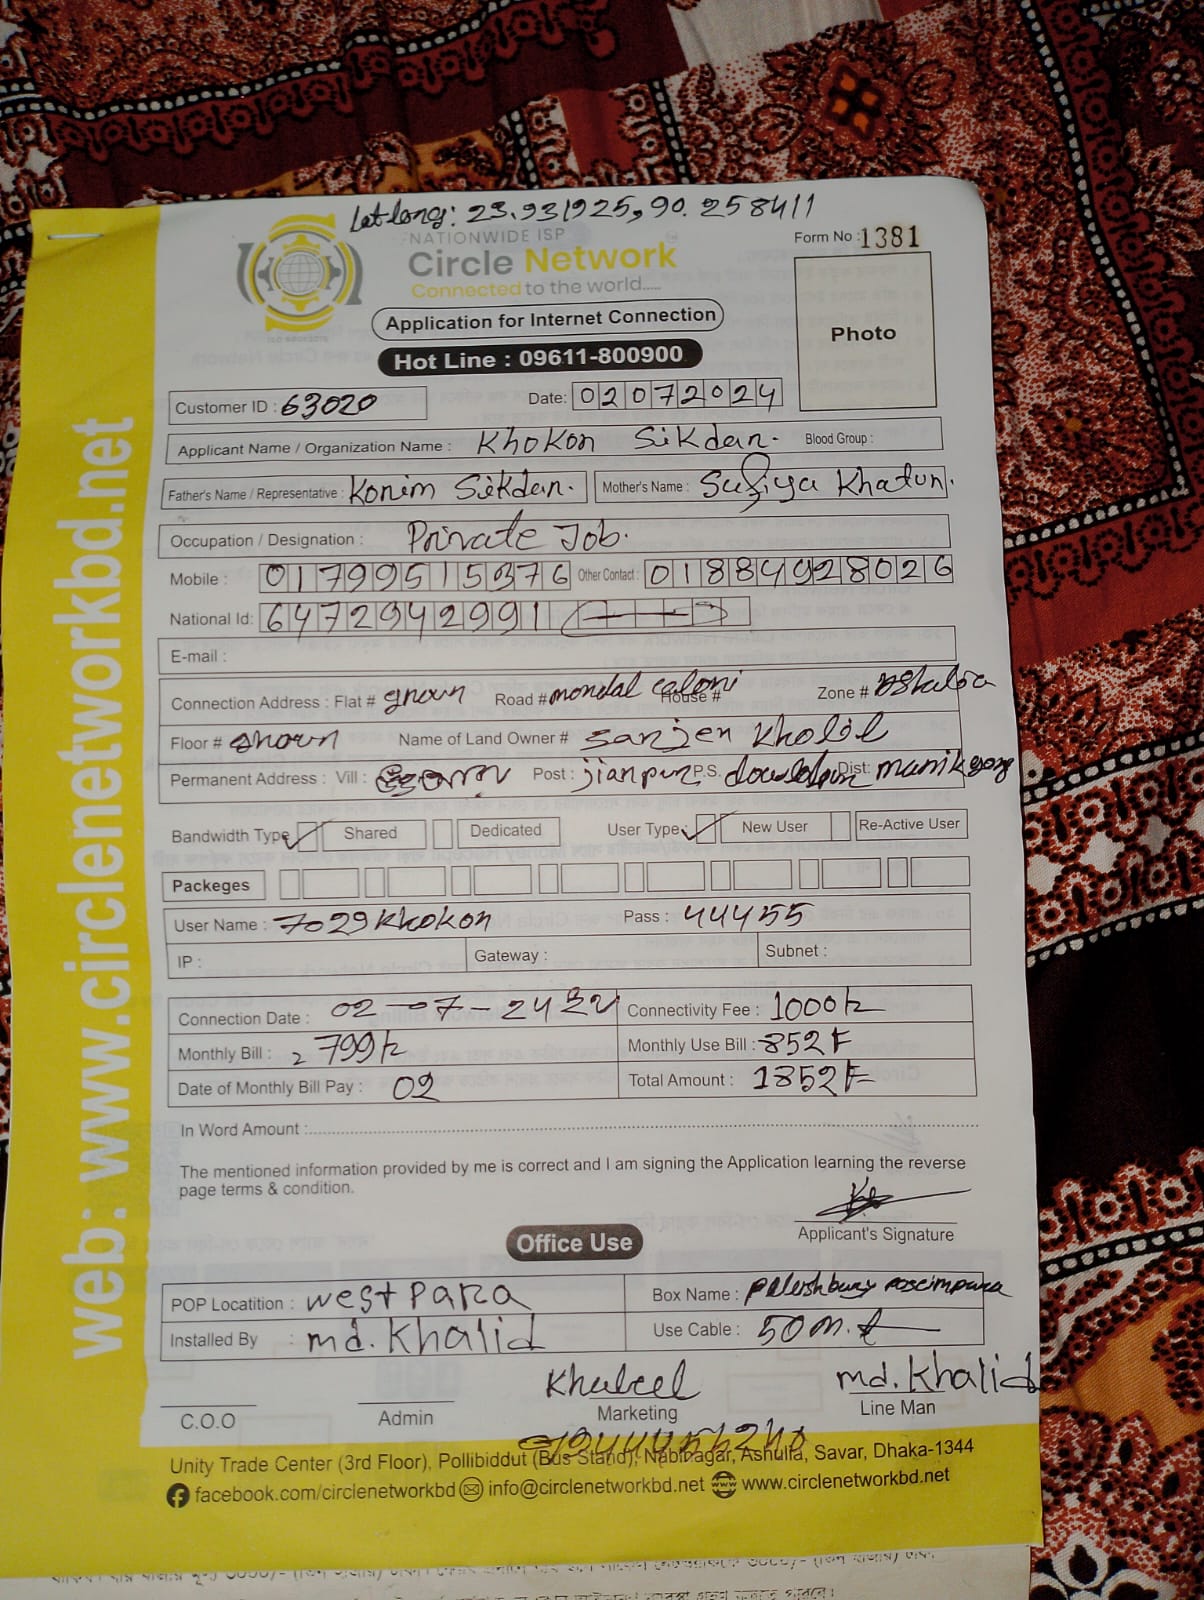 Let long: 23.931925, 90.258411
NATIONWIDE ISP
Circle Network
Connected to the world.....
Form No : 1381
Application for Internet Connection
Hot Line : 09611-800900
Photo
Customer ID : 63020
Date: 02072024
Applicant Name / Organization Name : Khokon Sikdar. Blood Group :
Father's Name / Representative : Korim Sikdar. Mother's Name : Sufiya Khatun.
Occupation / Designation : Private Job.
Mobile : 01799515376 Other Contact : 01884928026
National Id: 6472942991
E-mail :
Connection Address : Flat # Road # mondal caloni House # Zone #
Floor # Name of Land Owner # Kholil
Permanent Address : Vill : Post : jianpur P.S. Dist: manikgong
Bandwidth Type ✓ Shared Dedicated User Type ✓ New User Re-Active User
Packeges
User Name : 7029Khokon Pass : 44455
IP : Gateway : Subnet :
Connection Date : 02-07-24 Connectivity Fee : 1000/-
Monthly Bill : 799/- Monthly Use Bill : 852
Date of Monthly Bill Pay : 02 Total Amount : 1852
In Word Amount :
The mentioned information provided by me is correct and I am signing the Application learning the reverse
page terms & condition.
Applicant's Signature
Office Use
POP Locatition : west para Box Name :
Installed By : md. Khalid Use Cable : 50 m.
Khaleel md. Khalid
C.O.O Admin Marketing Line Man
Unity Trade Center (3rd Floor), Pollibiddut (Bus Stand), Nabinagar, Ashulia, Savar, Dhaka-1344
facebook.com/circlenetworkbd info@circlenetworkbd.net www.circlenetworkbd.net
web: www.circlenetworkbd.net